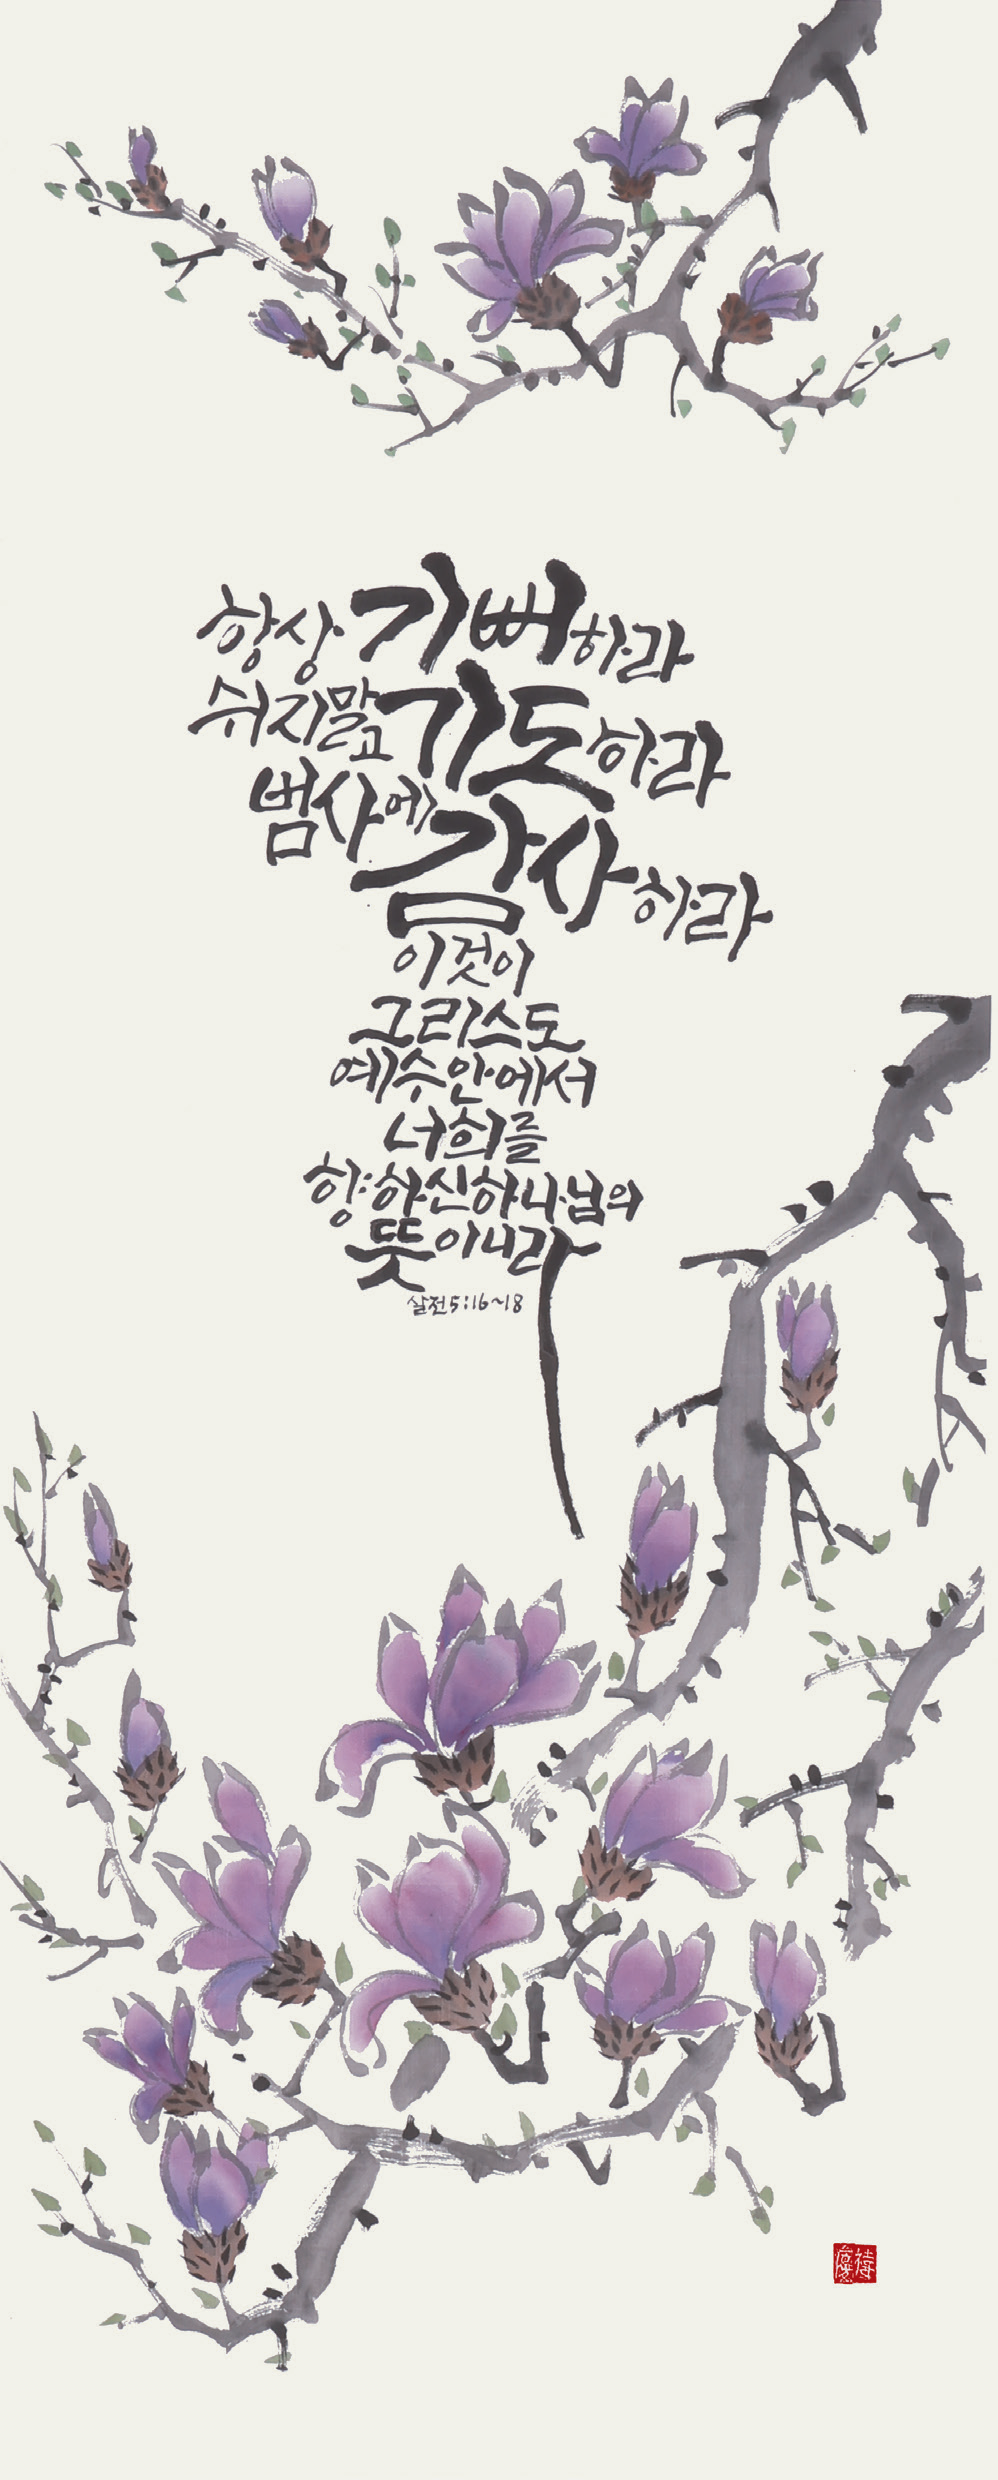 항상 기뻐하라
쉬지말고 기도하라
범사에 감사하라
이것이
그리스도
예수안에서
너희를
향하신하나님의
뜻이니라
살전5:16~18